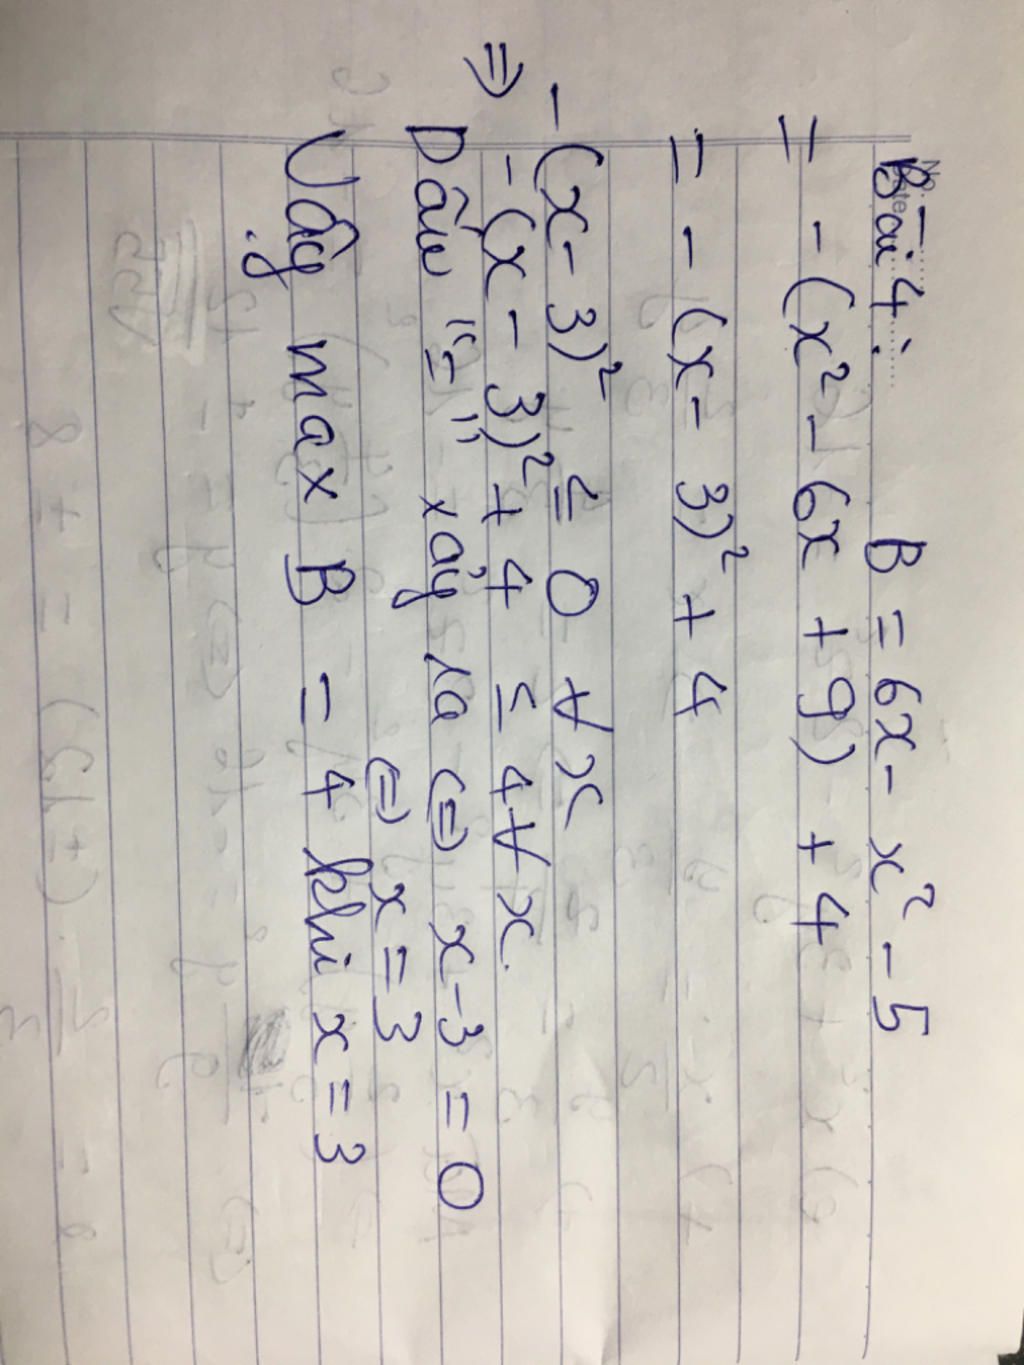 Bài 4: B = 6x - x² - 5
= - (x² - 6x + 9) + 4
= - (x - 3)² + 4
- (x - 3)² ≤ 0 ∀ x
⇒ - (x - 3)² + 4 ≤ 4 ∀ x.
Dấu "=" xảy ra ⇔ x - 3 = 0
⇔ x = 3
Vậy max B = 4 khi x = 3